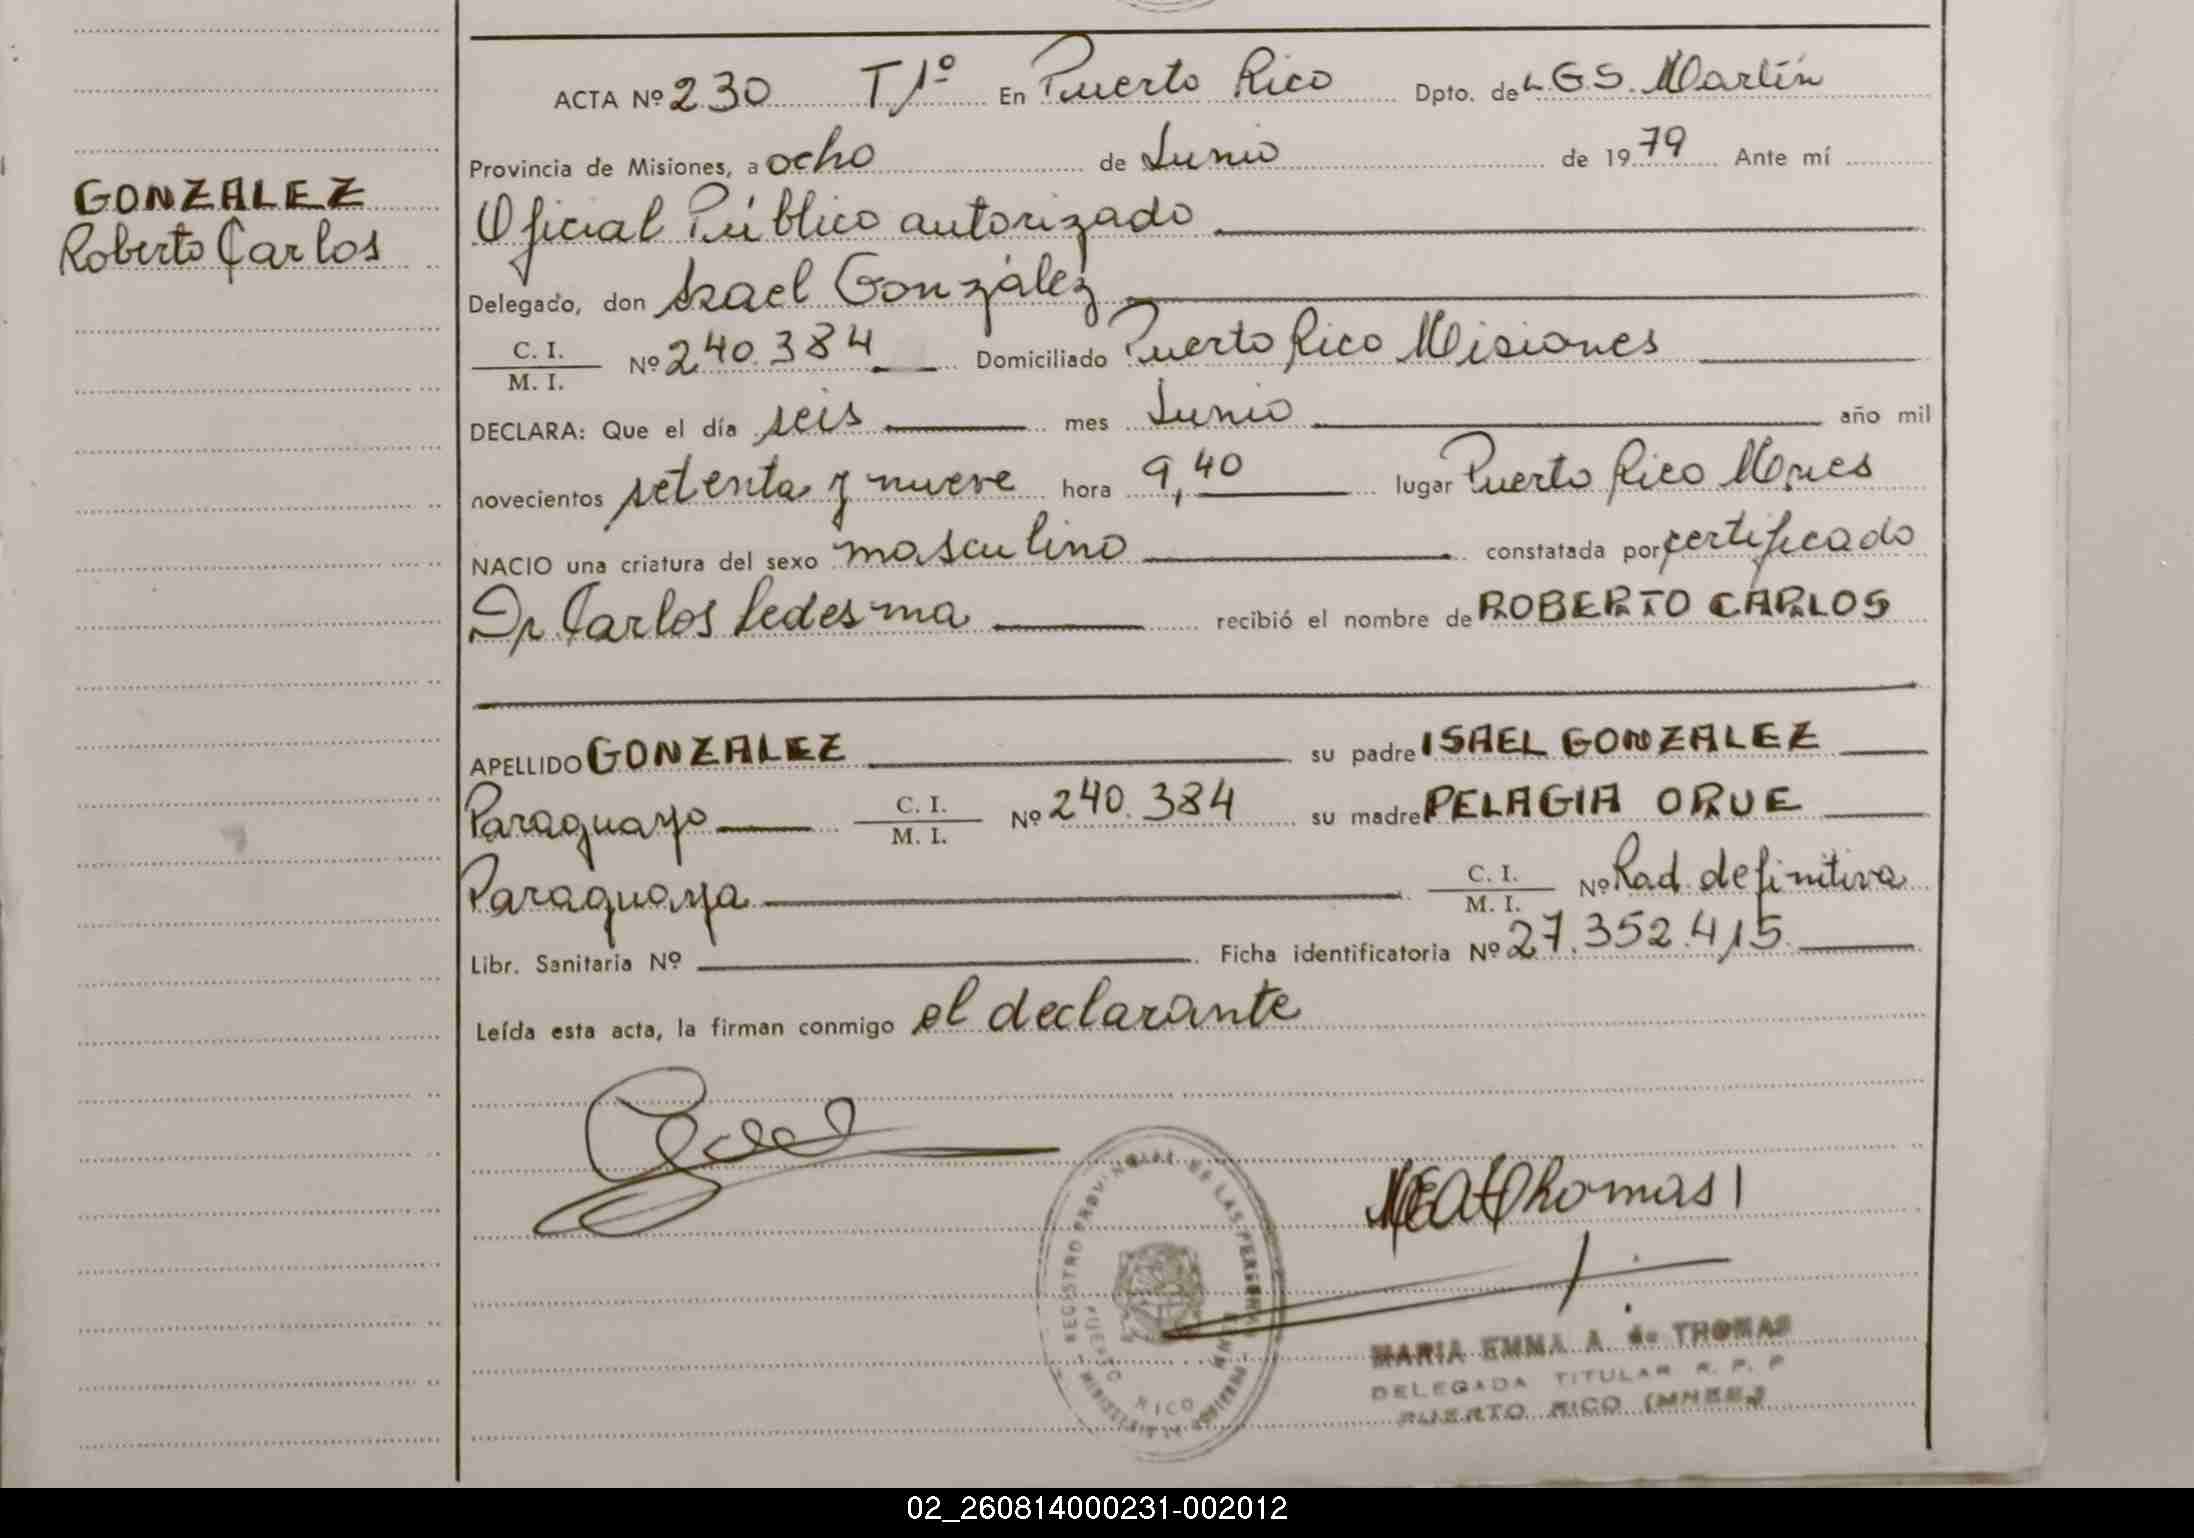 GONZALEZ
Roberto Carlos
ACTA Nº 230 T1º En Puerto Rico Dpto. de L.G.S. Martín
Provincia de Misiones, a ocho de Junio de 1979 Ante mí
Oficial Público autorizado
Delegado, don Isael González
C. I. / M. I. Nº 240.384 Domiciliado Puerto Rico Misiones
DECLARA: Que el día seis mes Junio año mil
novecientos setenta y nueve hora 9,40 lugar Puerto Rico Mnes
NACIO una criatura del sexo masculino constatada por certificado
Dr Carlos Ledesma recibió el nombre de ROBERTO CARLOS
APELLIDO GONZALEZ su padre ISAEL GONZALEZ
Paraguayo C. I. / M. I. Nº 240.384 su madre PELAGIA ORUE
Paraguaya C. I. / M. I. Nº Rad. definitiva
Libr. Sanitaria Nº Ficha identificatoria Nº 27.352.415
Leída esta acta, la firman conmigo el declarante
MEAdThomas
REGISTRO PROVINCIAL DE LAS PERSONAS
PUERTO RICO
MARIA EMMA A. de THOMAS
DELEGADA TITULAR R. P. P
PUERTO RICO (MNES.)
02_260814000231-002012